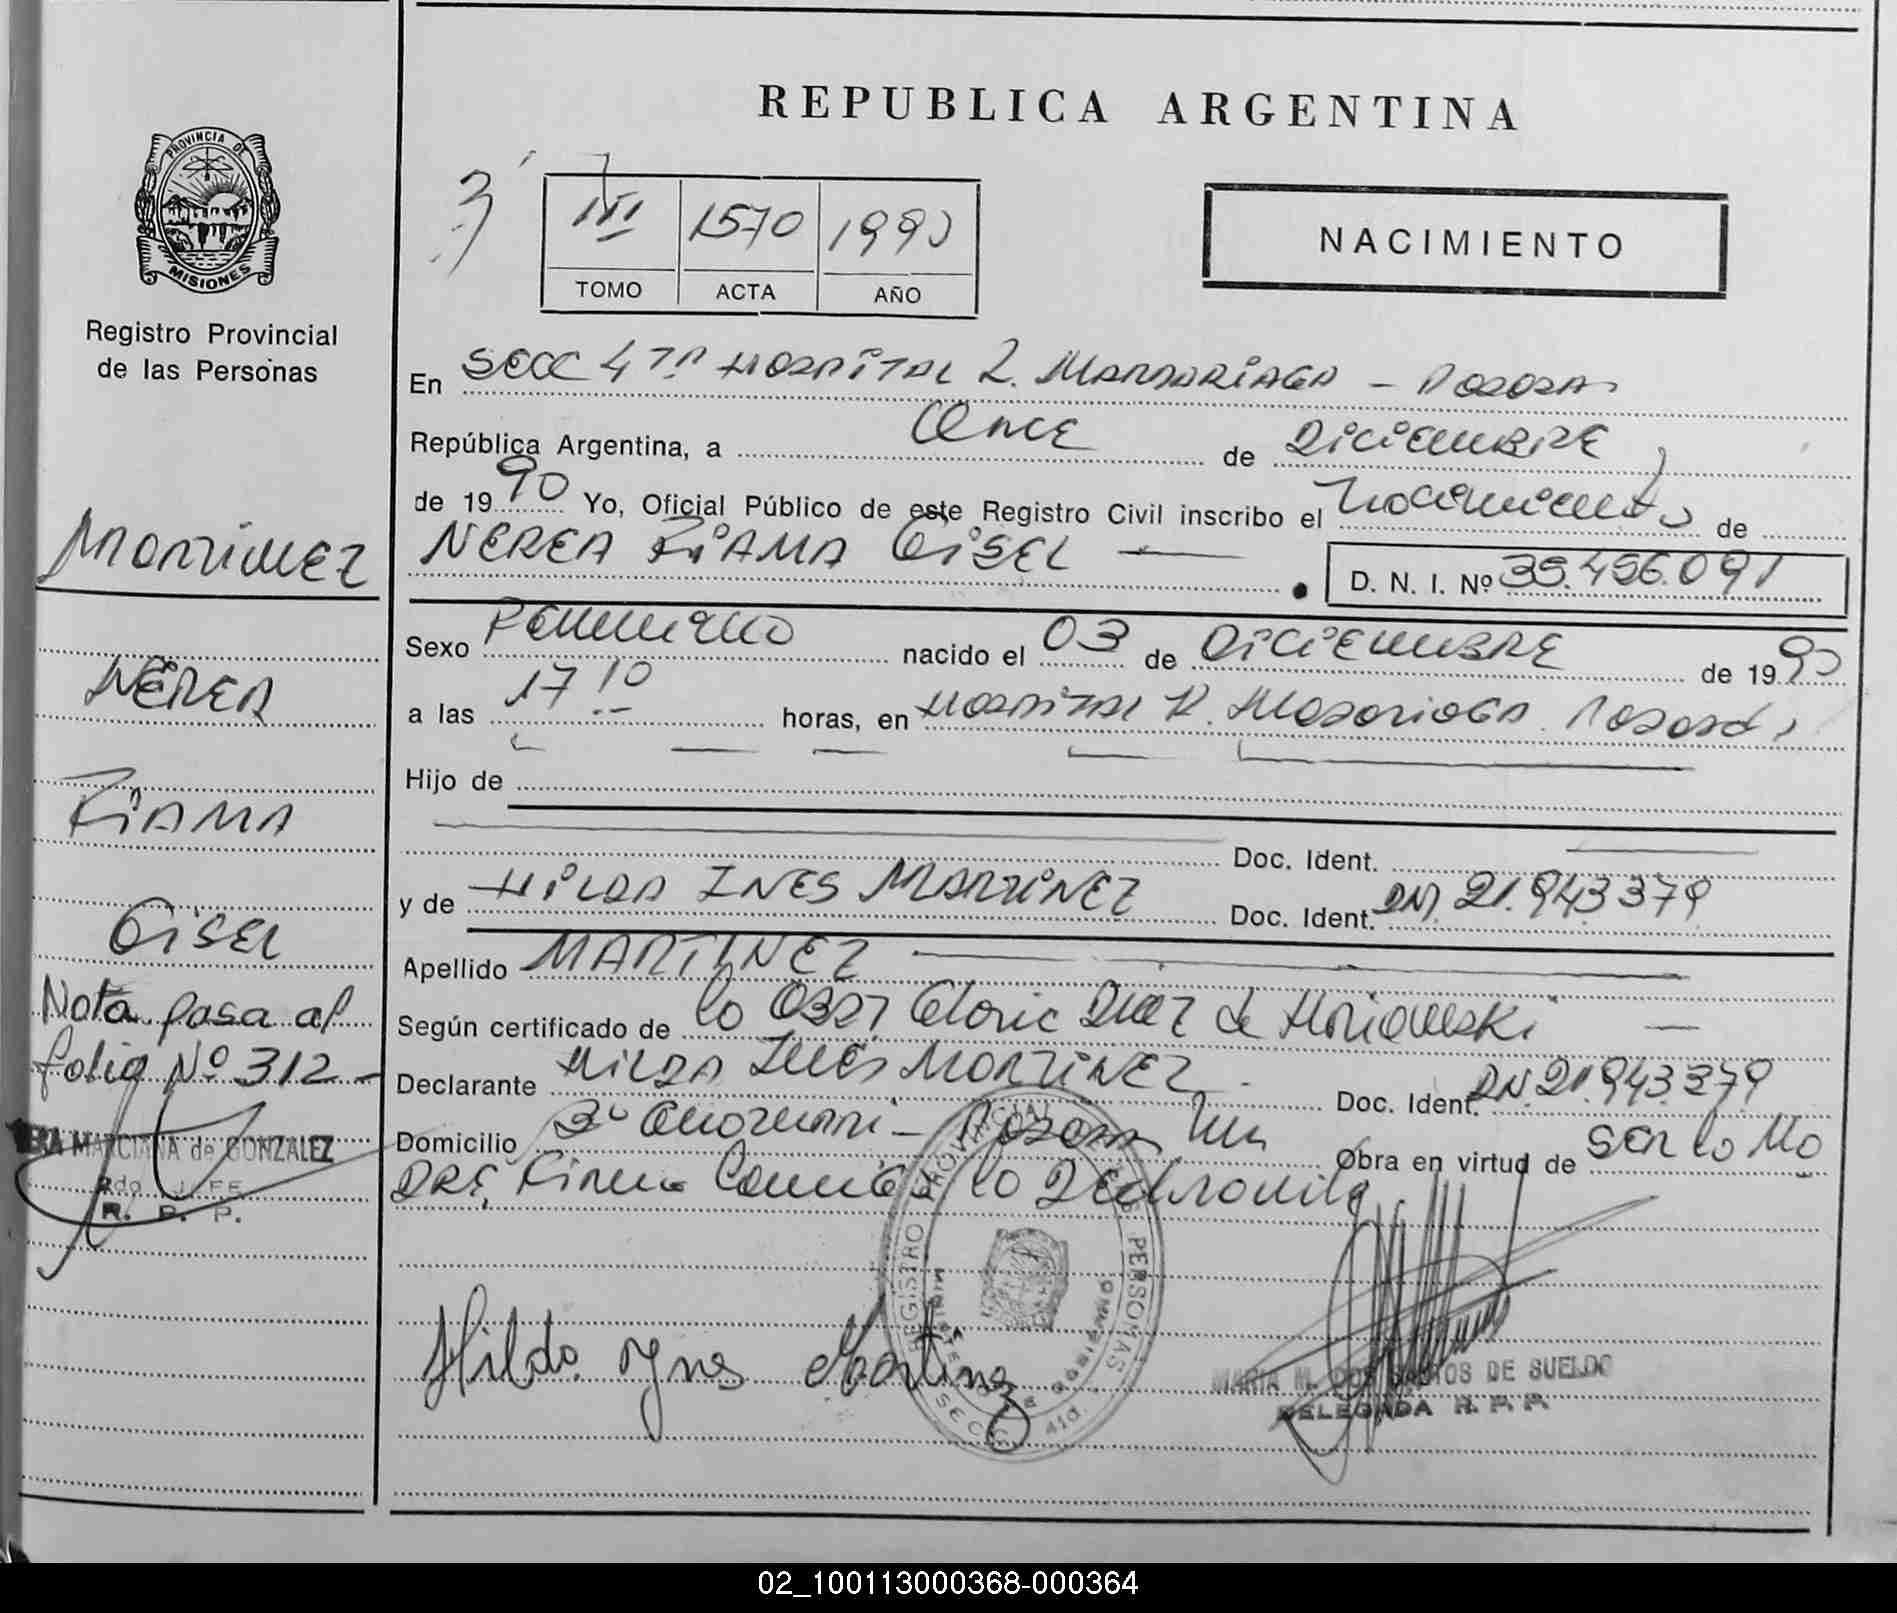 REPUBLICA ARGENTINA
PROVINCIA DE
MISIONES
Registro Provincial
de las Personas
III 1570 1990
TOMO ACTA AÑO
NACIMIENTO
En SECC 4TA HOSPITAL R. MADARIAGA - POSADAS
República Argentina, a Once de DICIEMBRE
de 1990 Yo, Oficial Público de este Registro Civil inscribo el Nacimiento de
NEREA KIAMA GISEL
D. N. I. Nº 35.456.091
MARTINEZ
NEREA
KIAMA
GISEL
Nota pasa al
folio Nº 312 -
VERA MARCIANA de GONZALEZ
2do JEFE
R. P. P.
Sexo Femenino nacido el 03 de DICIEMBRE de 1990
a las 17 10 horas, en HOSPITAL R. MADARIAGA POSADAS
Hijo de
Doc. Ident.
y de HILDA INES MARTINEZ Doc. Ident. DNI. 21.943.379
Apellido MARTINEZ
Según certificado de la Obst Gloria Diaz de
Declarante HILDA INES MARTINEZ Doc. Ident. DNI. 21.943.379
Domicilio Posadas Mnes Obra en virtud de SER la MA
DRE, Firma Conmigo la Declarante
REGISTRO PROVINCIAL DE LAS PERSONAS
MINISTERIO DE GOBIERNO
SECC. 4ta.
Hilda ynes Martinez
MARIA M. DOS SANTOS DE SUELDO
DELEGADA R. P. P.
02_100113000368-000364